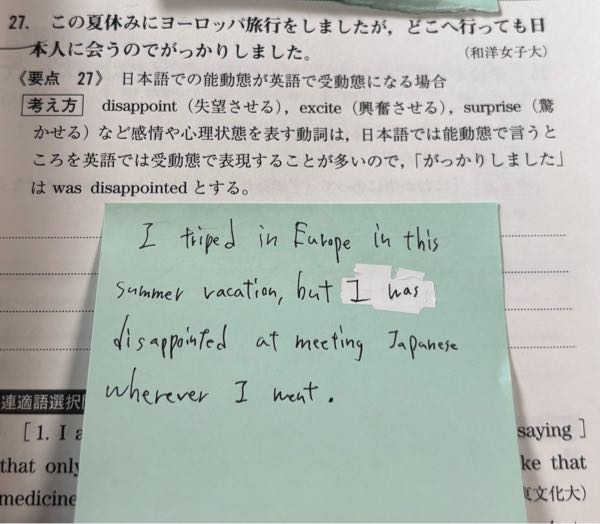 27. この夏休みにヨーロッパ旅行をしましたが，どこへ行っても日
本人に会うのでがっかりしました。 （和洋女子大）
《要点 27》 日本語での能動態が英語で受動態になる場合
考え方 disappoint（失望させる），excite（興奮させる），surprise（驚
かせる）など感情や心理状態を表す動詞は，日本語では能動態で言うと
ころを英語では受動態で表現することが多いので，「がっかりしました」
は was disappointed とする。
I triped in Europe in this
summer vacation, but I was
disappointed at meeting Japanese
wherever I went.
連適語選択
[1. I saying]
that only ke that
medicine 文化大）